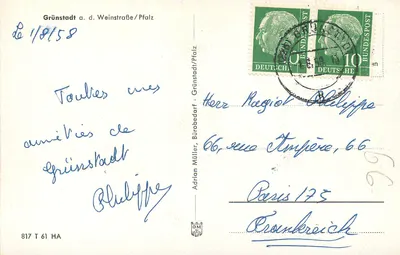 Grünstadt a. d. Weinstraße/Pfalz
Le 1/8/58
Toutes mes
amitiés de
Grünstadt
Philippe
817 T 61 HA
Adrian Müller, Bürobedarf - Grünstadt/Pfalz
DEUTSCHE
10
DEUTSCHE BUNDESPOST
Herr Philippe
66, rue Ampère, 66
Paris 175
Frankreich
66